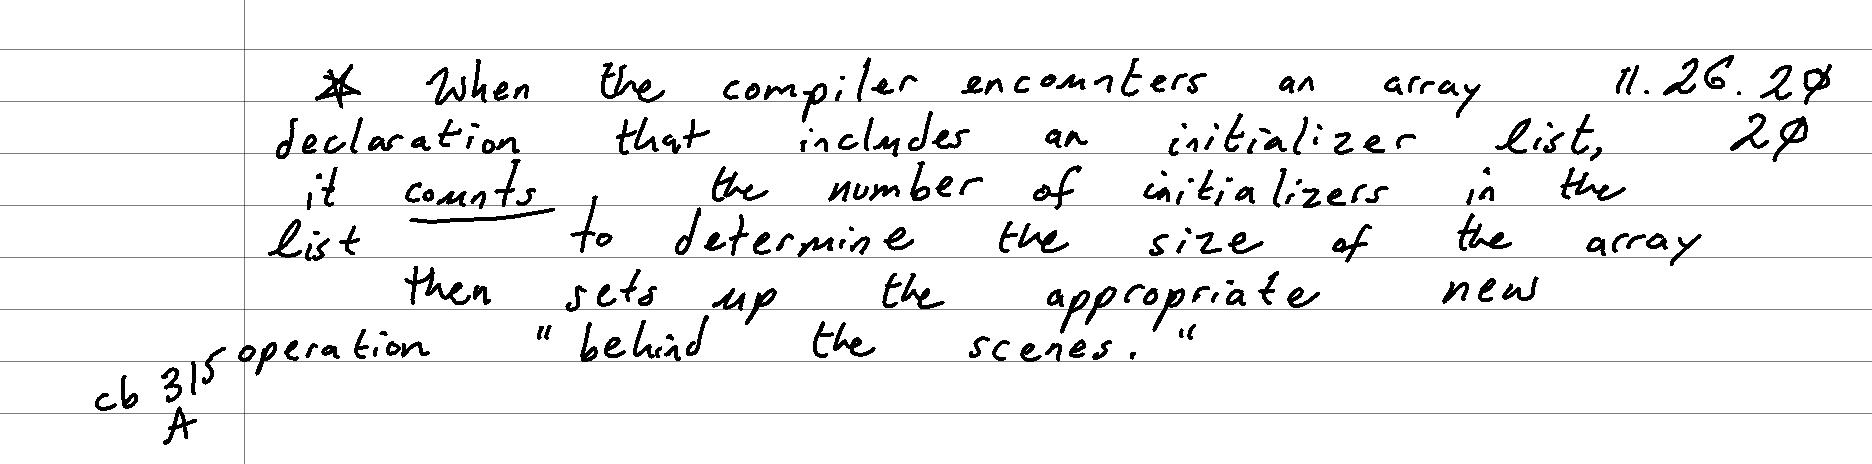 * When the compiler encounters an array 11.26.20
declaration that includes an initializer list, 20
it counts the number of initializers in the
list to determine the size of the array
then sets up the appropriate new
operation "behind the scenes."
cb 315
A